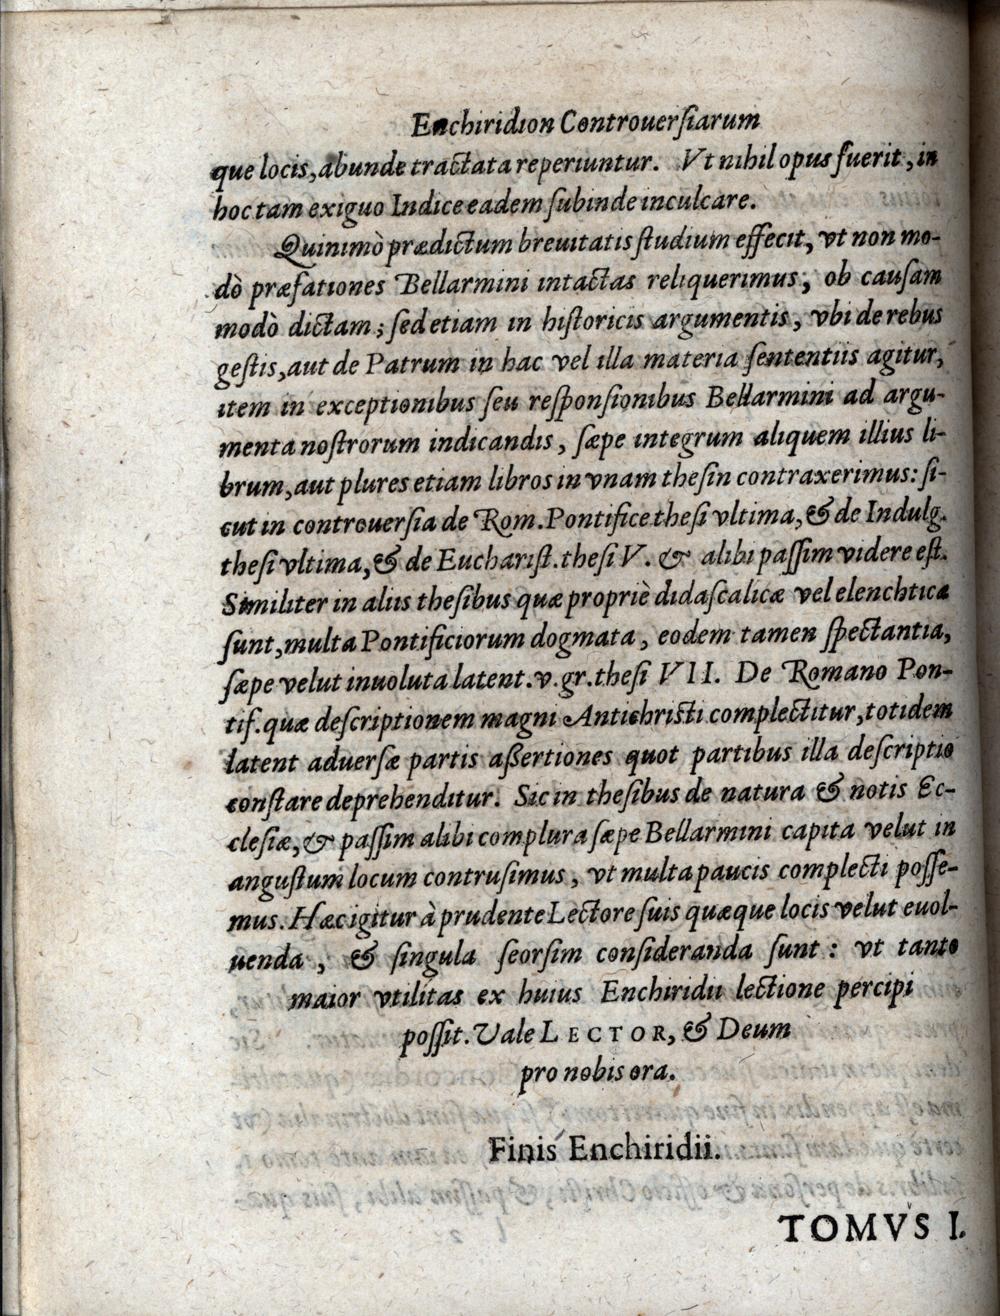 Enchiridion Controuerſiarum
que locis, abunde tractata reperiuntur. Vt nihil opus fuerit, in
hoc tam exiguo Indice eadem ſubinde inculcare.
Quinimò prædictum breuitatis ſtudium effecit, vt non mo-
dò præfationes Bellarmini intactas reliquerimus, ob cauſam
modò dictam; ſed etiam in hiſtoricis argumentis, vbi de rebus
geſtis, aut de Patrum in hac vel illa materia ſententiis agitur,
item in exceptionibus ſeu reſponſionibus Bellarmini ad argu-
menta noſtrorum indicandis, ſæpe integrum aliquem illius li-
brum, aut plures etiam libros in vnam theſin contraxerimus: ſi-
cut in controuerſia de Rom. Pontifice theſi vltima, & de Indulg.
theſi vltima, & de Euchariſt. theſi V. & alibi paſſim videre eſt.
Similiter in aliis theſibus quæ propriè didaſcalicæ vel elenchticæ
ſunt, multa Pontificiorum dogmata, eodem tamen ſpectantia,
ſæpe velut inuoluta latent. v. gr. theſi VII. De Romano Pon-
tif. quæ deſcriptionem magni Antichriſti complectitur, totidem
latent aduerſæ partis aſſertiones quot partibus illa deſcriptio
conſtare deprehenditur. Sic in theſibus de natura & notis Ec-
cleſiæ, & paſſim alibi complura ſæpe Bellarmini capita velut in
anguſtum locum contruſimus, vt multa paucis complecti poſſe-
mus. Hæc igitur à prudente Lectore ſuis quæque locis velut euol-
uenda, & ſingula ſeorſim conſideranda ſunt: vt tanto
maior vtilitas ex huius Enchiridii lectione percipi
poſſit. Vale LECTOR, & Deum
pro nobis ora.
Finis Enchiridii.
TOMVS I.